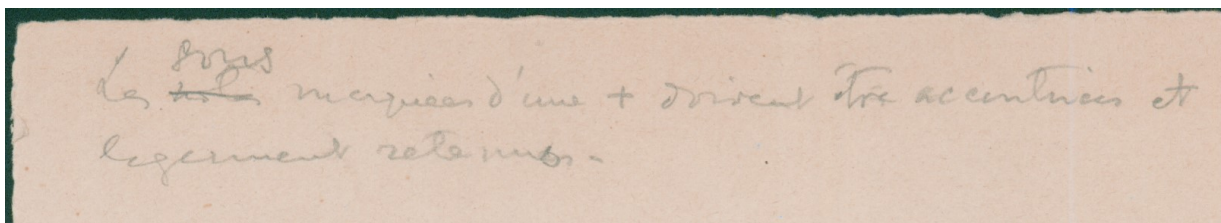 sons
Les notes marquées d'une + doivent être accentuées et
legerment retenues.